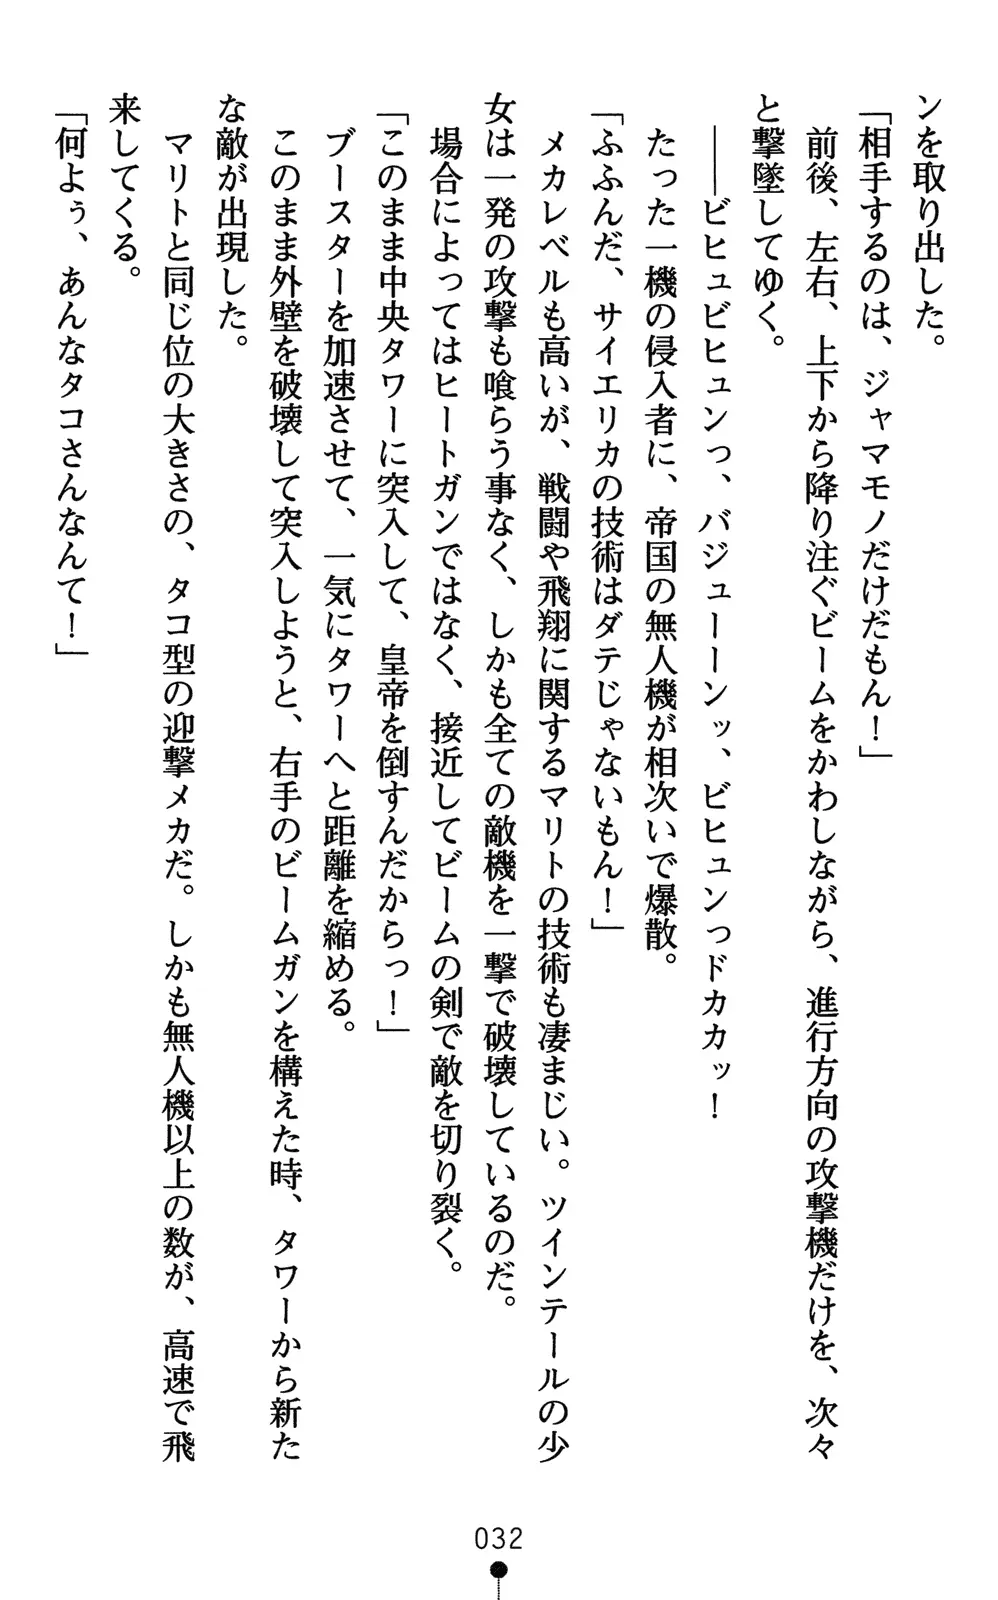 ンを取り出した。
「相手するのは、ジャマモノだけだもん！」
前後、左右、上下から降り注ぐビームをかわしながら、進行方向の攻撃機だけを、次々
と撃墜してゆく。
――ビヒュビヒュンっ、バジューーンッ、ビヒュンっドカカッ！
たった一機の侵入者に、帝国の無人機が相次いで爆散。
「ふふんだ、サイエリカの技術はダテじゃないもん！」
メカレベルも高いが、戦闘や飛翔に関するマリトの技術も凄まじい。ツインテールの少
女は一発の攻撃も喰らう事なく、しかも全ての敵機を一撃で破壊しているのだ。
場合によってはヒートガンではなく、接近してビームの剣で敵を切り裂く。
「このまま中央タワーに突入して、皇帝を倒すんだからっ！」
ブースターを加速させて、一気にタワーへと距離を縮める。
このまま外壁を破壊して突入しようと、右手のビームガンを構えた時、タワーから新た
な敵が出現した。
マリトと同じ位の大きさの、タコ型の迎撃メカだ。しかも無人機以上の数が、高速で飛
来してくる。
「何よぅ、あんなタコさんなんて！」
032